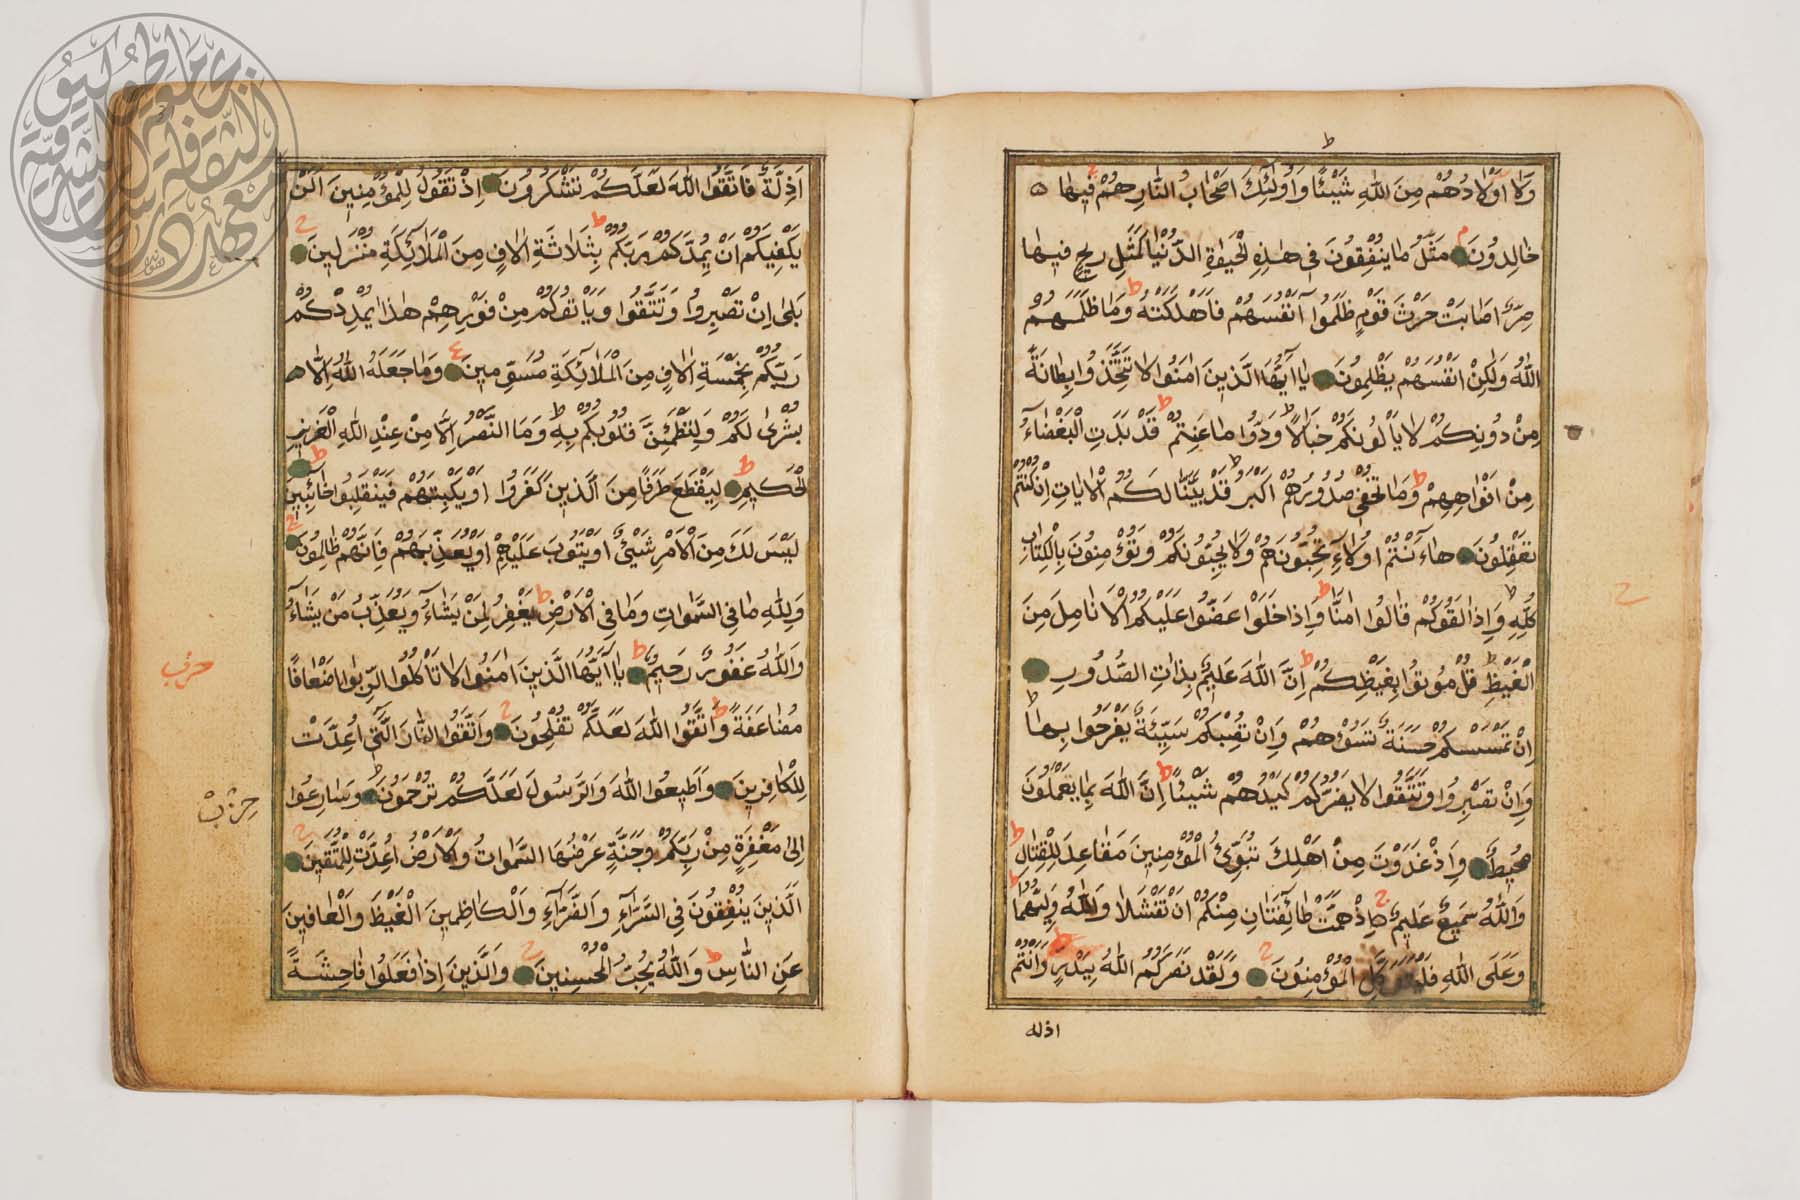 وَلَا اَوْلَادُهُمْ مِنَ اللّٰهِ شَيْئًا وَاُولٰئِكَ اَصْحَابُ النَّارِ هُمْ فِيهَا
خَالِدُونَ مَثَلُ مَا يُنْفِقُونَ فِى هٰذِهِ الْحَيٰوةِ الدُّنْيَا كَمَثَلِ رِيحٍ فِيهَا
صِرٌّ اَصَابَتْ حَرْثَ قَوْمٍ ظَلَمُوا اَنْفُسَهُمْ فَاَهْلَكَتْهُ وَمَا ظَلَمَهُمُ
اللّٰهُ وَلٰكِنْ اَنْفُسَهُمْ يَظْلِمُونَ يَا اَيُّهَا الَّذِينَ اٰمَنُوا لَا تَتَّخِذُوا بِطَانَةً
مِنْ دُونِكُمْ لَا يَاْلُونَكُمْ خَبَالًا وَدُّوا مَا عَنِتُّمْ قَدْ بَدَتِ الْبَغْضَاءُ
مِنْ اَفْوَاهِهِمْ وَمَا تُخْفِى صُدُورُهُمْ اَكْبَرُ قَدْ بَيَّنَّا لَكُمُ الْاٰيَاتِ اِنْ كُنْتُمْ
تَعْقِلُونَ هَا اَنْتُمْ اُولَاءِ تُحِبُّونَهُمْ وَلَا يُحِبُّونَكُمْ وَتُؤْمِنُونَ بِالْكِتَابِ
كُلِّهِ وَاِذَا لَقُوكُمْ قَالُوا اٰمَنَّا وَاِذَا خَلَوْا عَضُّوا عَلَيْكُمُ الْاَنَامِلَ مِنَ
الْغَيْظِ قُلْ مُوتُوا بِغَيْظِكُمْ اِنَّ اللّٰهَ عَلِيمٌ بِذَاتِ الصُّدُورِ
اِنْ تَمْسَسْكُمْ حَسَنَةٌ تَسُؤْهُمْ وَاِنْ تُصِبْكُمْ سَيِّئَةٌ يَفْرَحُوا بِهَا
وَاِنْ تَصْبِرُوا وَتَتَّقُوا لَا يَضُرُّكُمْ كَيْدُهُمْ شَيْئًا اِنَّ اللّٰهَ بِمَا يَعْمَلُونَ
مُحِيطٌ وَاِذْ غَدَوْتَ مِنْ اَهْلِكَ تُبَوِّئُ الْمُؤْمِنِينَ مَقَاعِدَ لِلْقِتَالِ
وَاللّٰهُ سَمِيعٌ عَلِيمٌ اِذْ هَمَّتْ طَائِفَتَانِ مِنْكُمْ اَنْ تَفْشَلَا وَاللّٰهُ وَلِيُّهُمَا
وَعَلَى اللّٰهِ فَلْيَتَوَكَّلِ الْمُؤْمِنُونَ وَلَقَدْ نَصَرَكُمُ اللّٰهُ بِبَدْرٍ وَاَنْتُمْ
اذله
اَذِلَّةٌ فَاتَّقُوا اللّٰهَ لَعَلَّكُمْ تَشْكُرُونَ اِذْ تَقُولُ لِلْمُؤْمِنِينَ اَلَنْ
يَكْفِيَكُمْ اَنْ يُمِدَّكُمْ رَبُّكُمْ بِثَلَاثَةِ اٰلَافٍ مِنَ الْمَلَائِكَةِ مُنْزَلِينَ
بَلٰى اِنْ تَصْبِرُوا وَتَتَّقُوا وَيَاْتُوكُمْ مِنْ فَوْرِهِمْ هٰذَا يُمْدِدْكُمْ
رَبُّكُمْ بِخَمْسَةِ اٰلَافٍ مِنَ الْمَلَائِكَةِ مُسَوِّمِينَ وَمَا جَعَلَهُ اللّٰهُ اِلَّا
بُشْرٰى لَكُمْ وَلِتَطْمَئِنَّ قُلُوبُكُمْ بِهِ وَمَا النَّصْرُ اِلَّا مِنْ عِنْدِ اللّٰهِ الْعَزِيزِ
الْحَكِيمِ لِيَقْطَعَ طَرَفًا مِنَ الَّذِينَ كَفَرُوا اَوْ يَكْبِتَهُمْ فَيَنْقَلِبُوا خَائِبِينَ
لَيْسَ لَكَ مِنَ الْاَمْرِ شَيْئٌ اَوْ يَتُوبَ عَلَيْهِمْ اَوْ يُعَذِّبَهُمْ فَاِنَّهُمْ ظَالِمُونَ
وَلِلّٰهِ مَا فِى السَّمٰوَاتِ وَمَا فِى الْاَرْضِ يَغْفِرُ لِمَنْ يَشَاءُ وَيُعَذِّبُ مَنْ يَشَاءُ
وَاللّٰهُ غَفُورٌ رَحِيمٌ يَا اَيُّهَا الَّذِينَ اٰمَنُوا لَا تَاْكُلُوا الرِّبٰوا اَضْعَافًا
مُضَاعَفَةً وَاتَّقُوا اللّٰهَ لَعَلَّكُمْ تُفْلِحُونَ وَاتَّقُوا النَّارَ الَّتِى اُعِدَّتْ
لِلْكَافِرِينَ وَاَطِيعُوا اللّٰهَ وَالرَّسُولَ لَعَلَّكُمْ تُرْحَمُونَ وَسَارِعُوا
اِلٰى مَغْفِرَةٍ مِنْ رَبِّكُمْ وَجَنَّةٍ عَرْضُهَا السَّمٰوَاتُ وَالْاَرْضُ اُعِدَّتْ لِلْمُتَّقِينَ
اَلَّذِينَ يُنْفِقُونَ فِى السَّرَّاءِ وَالضَّرَّاءِ وَالْكَاظِمِينَ الْغَيْظَ وَالْعَافِينَ
عَنِ النَّاسِ وَاللّٰهُ يُحِبُّ الْمُحْسِنِينَ وَالَّذِينَ اِذَا فَعَلُوا فَاحِشَةً
حزب
حِزْبْ